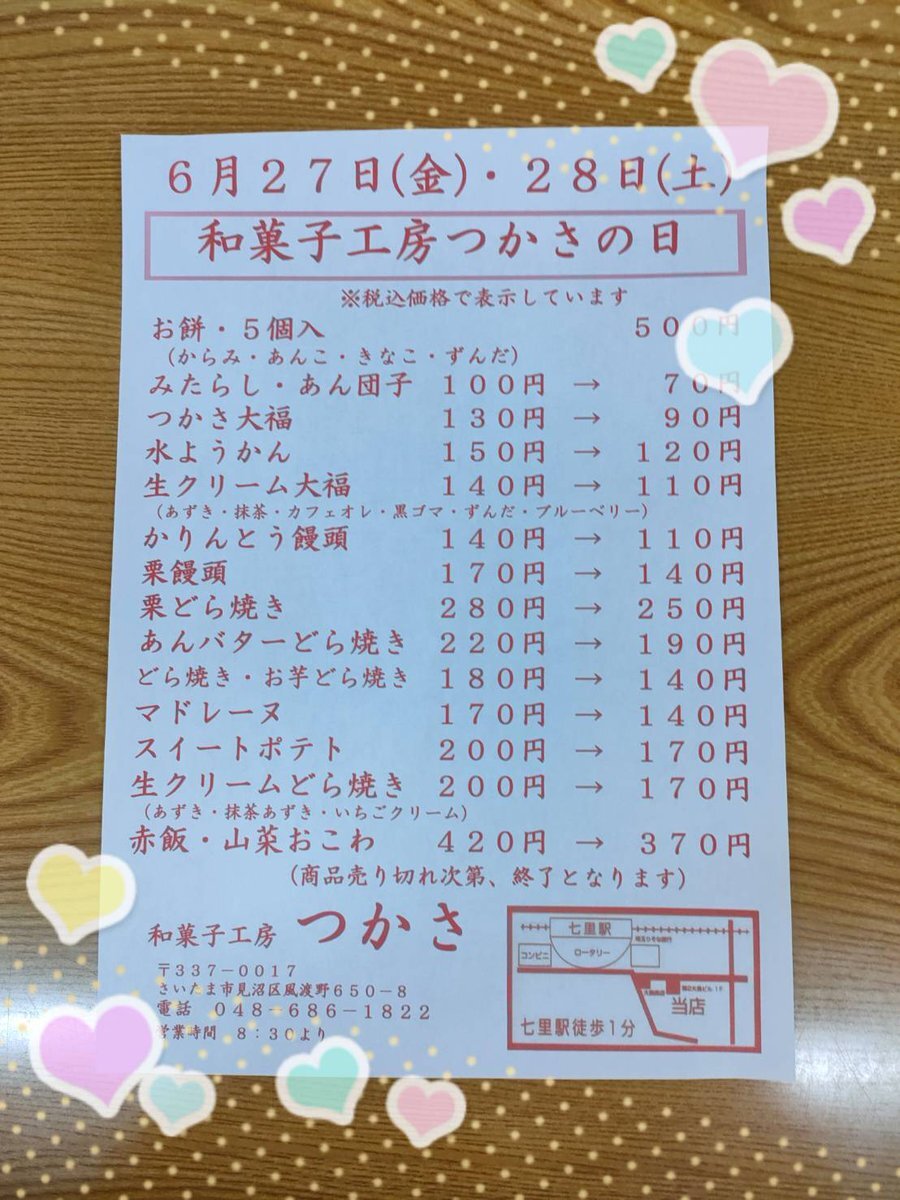 6月27日(金)・28日(土)
和菓子工房つかさの日
※税込価格で表示しています
お餅・5個入 500円
(からみ・あんこ・きなこ・ずんだ)
みたらし・あん団子 100円 → 70円
つかさ大福 130円 → 90円
水ようかん 150円 → 120円
生クリーム大福 140円 → 110円
(あずき・抹茶・カフェオレ・黒ゴマ・ずんだ・ブルーベリー)
かりんとう饅頭 140円 → 110円
栗饅頭 170円 → 140円
栗どら焼き 280円 → 250円
あんバターどら焼き 220円 → 190円
どら焼き・お芋どら焼き 180円 → 140円
マドレーヌ 170円 → 140円
スイートポテト 200円 → 170円
生クリームどら焼き 200円 → 170円
(あずき・抹茶あずき・いちごクリーム)
赤飯・山菜おこわ 420円 → 370円
(商品売り切れ次第、終了となります)
和菓子工房 つかさ
〒337-0017
さいたま市見沼区風渡野650-8
電話 048-686-1822
営業時間 8:30より
七里駅
コンビニ
ロータリー
埼玉りそな銀行
当店
七里駅徒歩1分